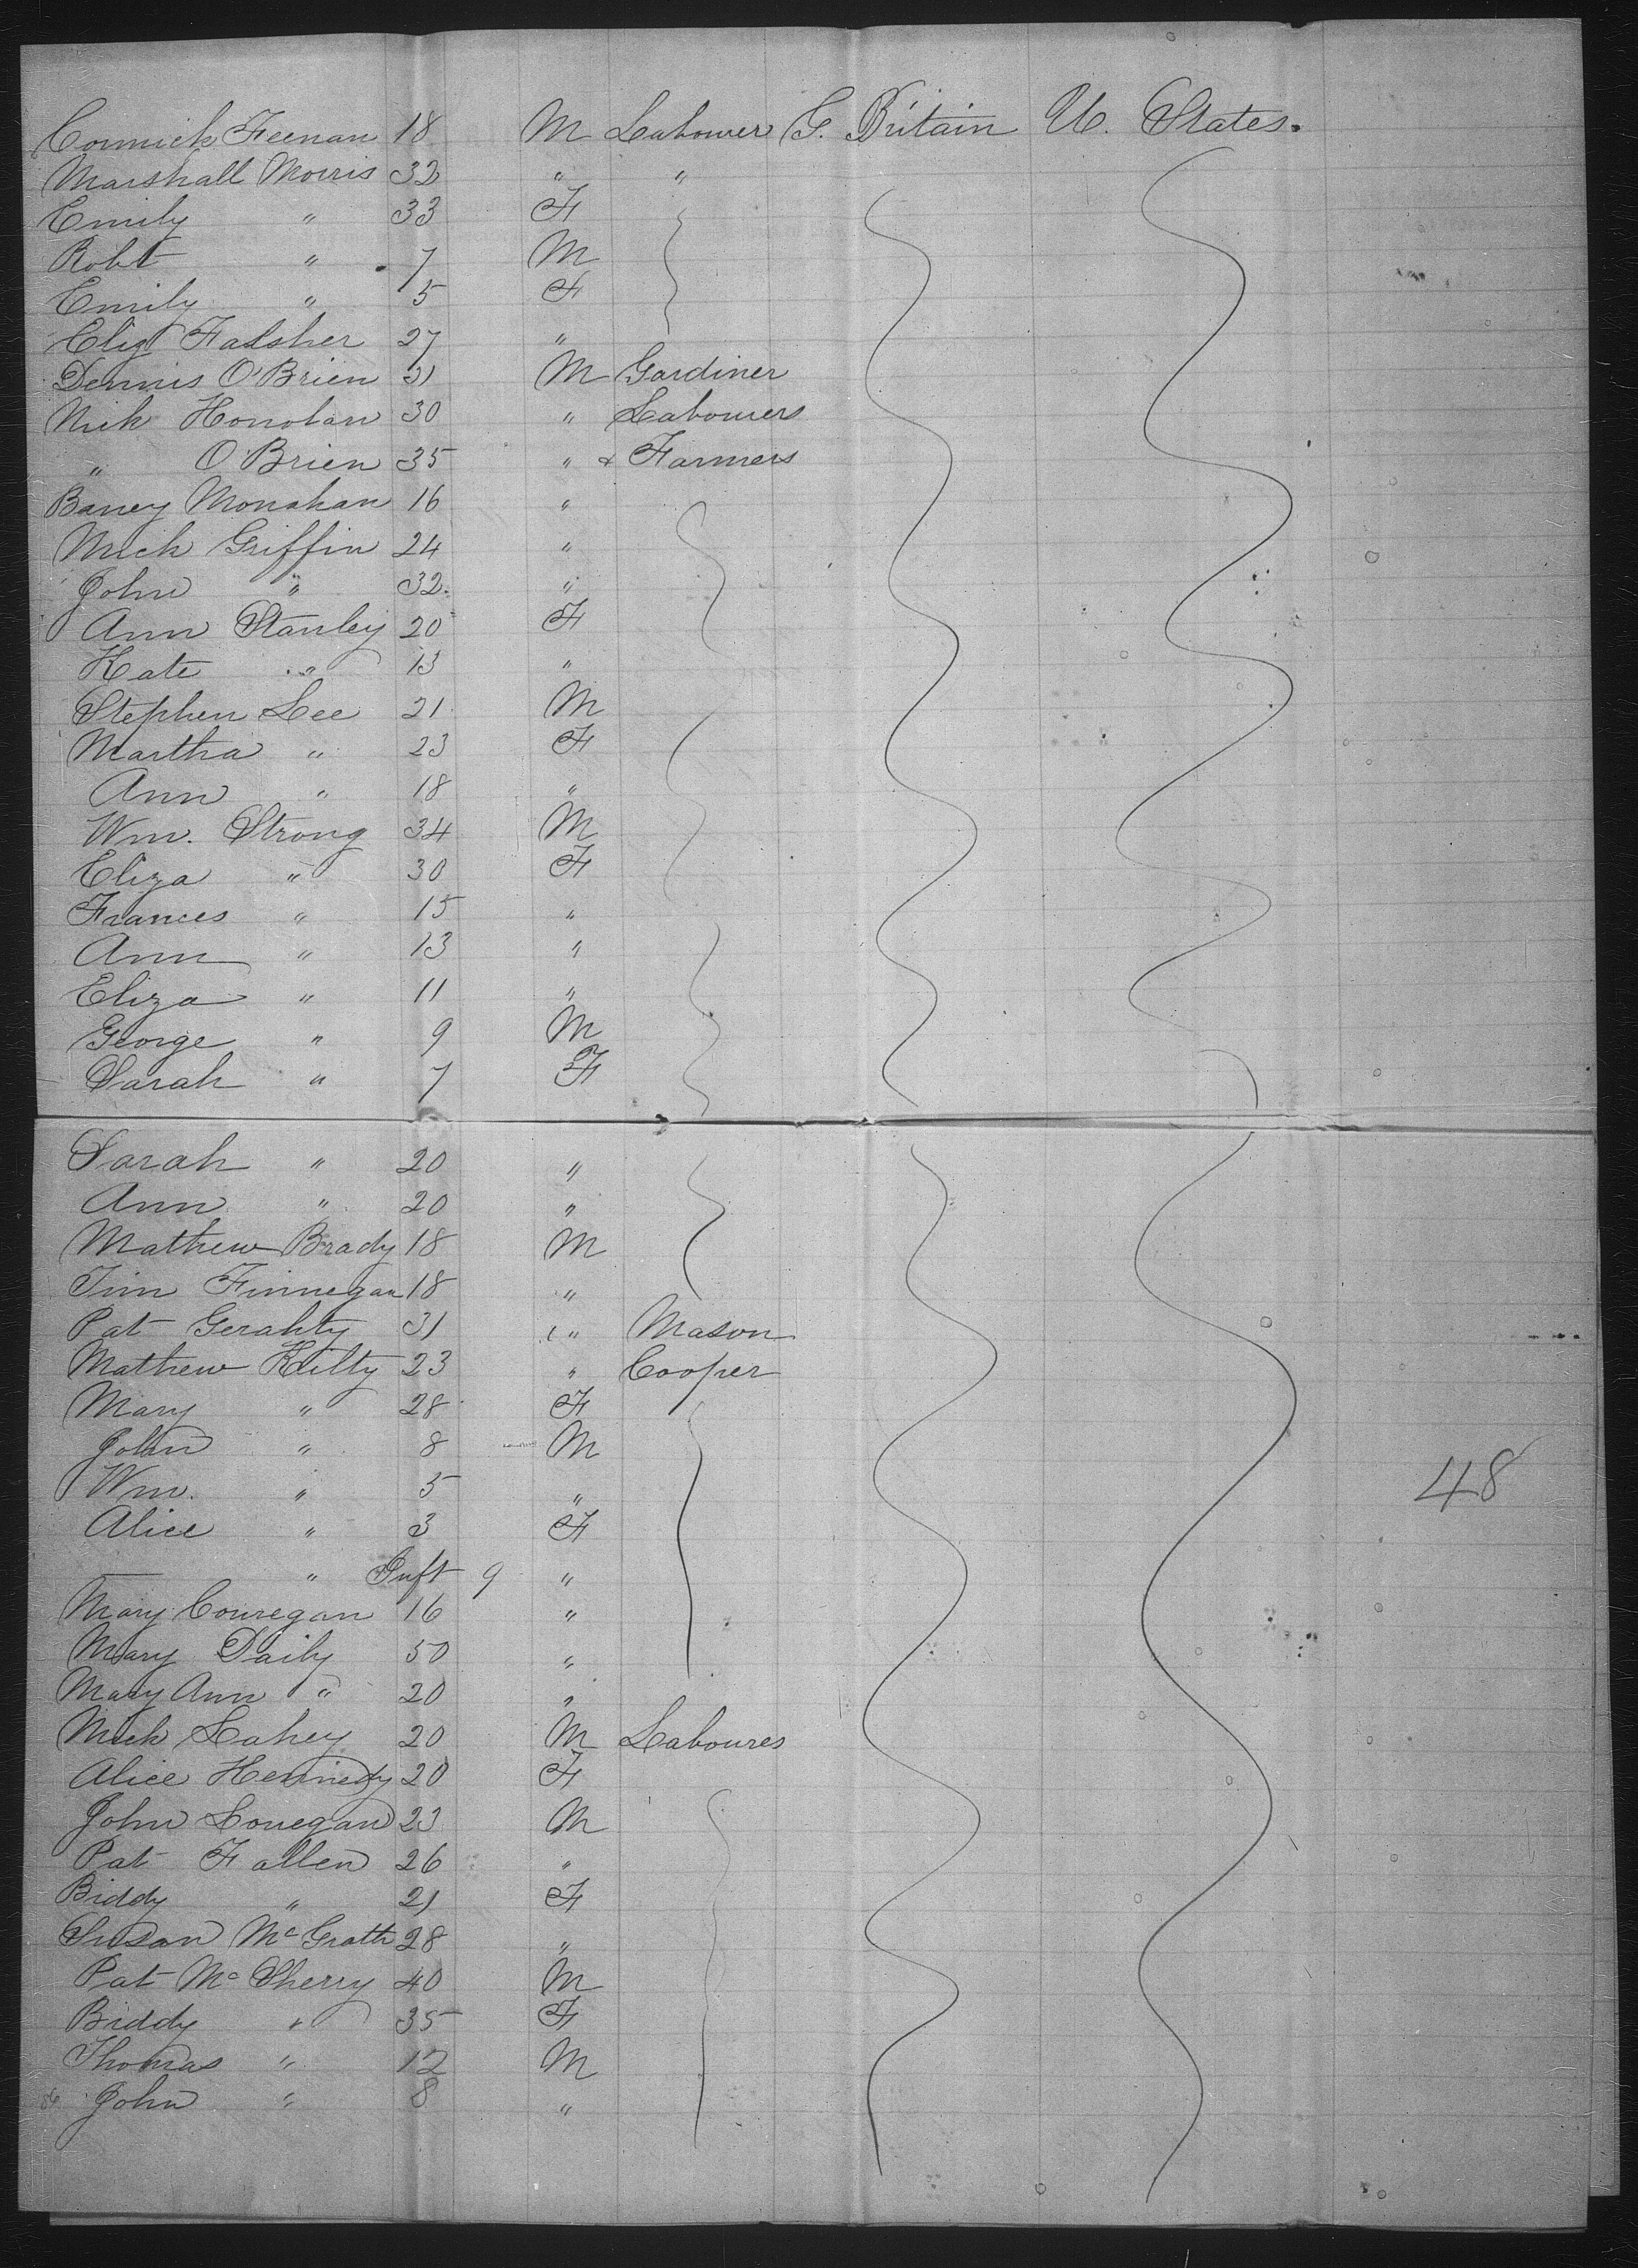 Cormick Feenan 18 M Labourer G. Britain U. States.
Marshall Morris 32 " "
Emily " 33 F
Robt " 7 M
Emily " 5 F
Eliz Falsher 27 "
Dennis O'Brien 31 M Gardiner
Mick Honohan 30 " Labourers
" O'Brien 35 " & Farmers
Barney Monahan 16 "
Mick Griffin 24 "
John " 32 "
Ann Stanley 20 F
Kate " 13 "
Stephen Lee 21 M
Martha " 23 F
Ann " 18 "
Wm. Strong 34 M
Eliza " 30 F
Frances " 15 "
Ann " 13 "
Eliza " 11 "
George " 9 M
Sarah " 7 F
Sarah " 20 "
Ann " 20 "
Mathew Brady 18 M
Tim Finnegan 18 "
Pat Gerahty 31 " Mason
Mathew Kilty 23 " Cooper
Mary " 28 F
John " 8 M
Wm. " 5 "
48
Alice " 3 F
" Inft 9 "
Mary 16 "
Mary Daily 50 "
Mary Ann " 20 "
Mick Lahey 20 M Laboures
Alice Kennedy 20 F
John Lonegan 23 M
Pat Fallen 26 "
Biddy " 21 F
Susan McGrath 28 "
Pat McSherry 40 M
Biddy " 35 F
Thomas " 12 M
John " 8 "